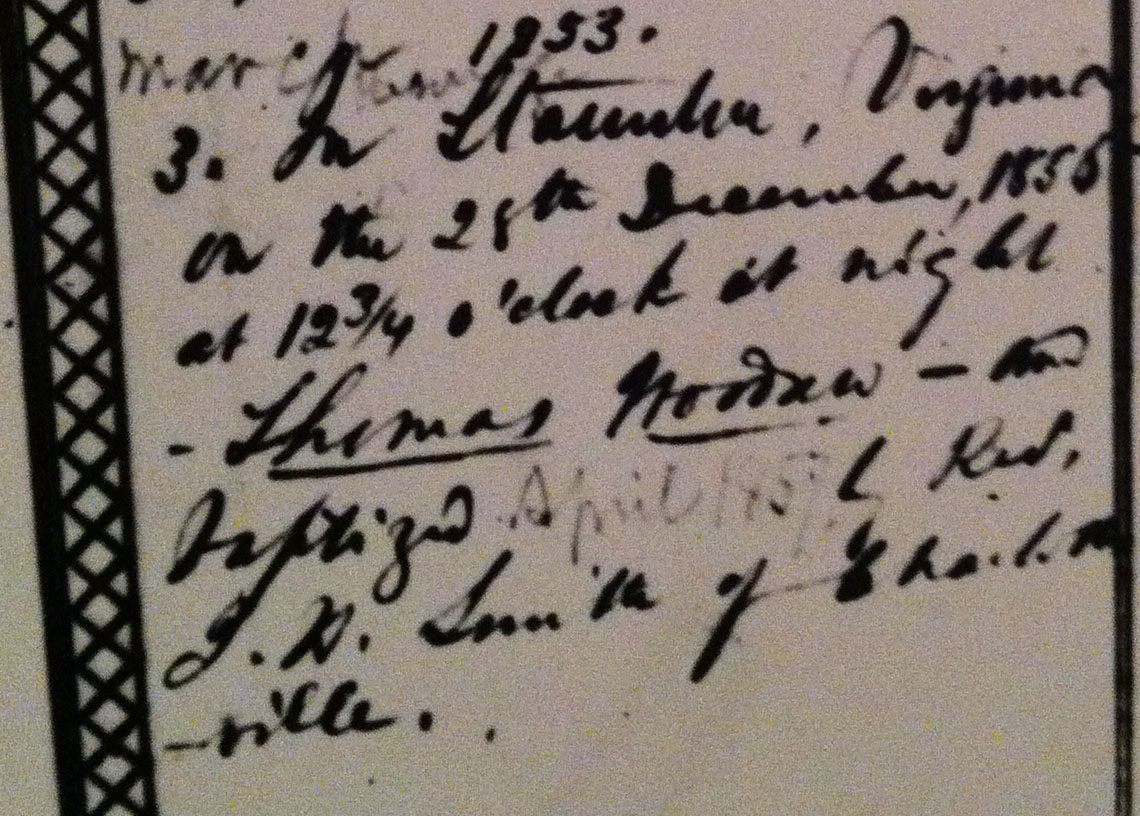 1853.
3. In Staunton, Virginia
on the 28th December, 1856
at 12 3/4 o'clock at night
- Thomas Woodrow - and
baptized April 1857 by Revd,
J. H. Smith of Charlottes
-ville.